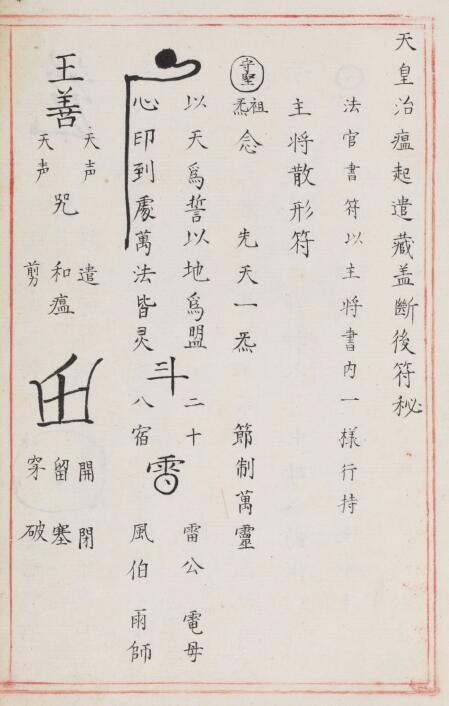 天皇治瘟起遣藏盖斷後符秘
法官書符以主將書内一樣行持
主將散形符
祖炁念 先天一炁 節制萬靈
以天爲誓以地爲盟 二十 雷公 電母
心印到處萬法皆灵 斗 八宿 風伯 雨師
天声 遣 開 閉
王善 咒 和瘟 留 塞
天声 剪 穿 破